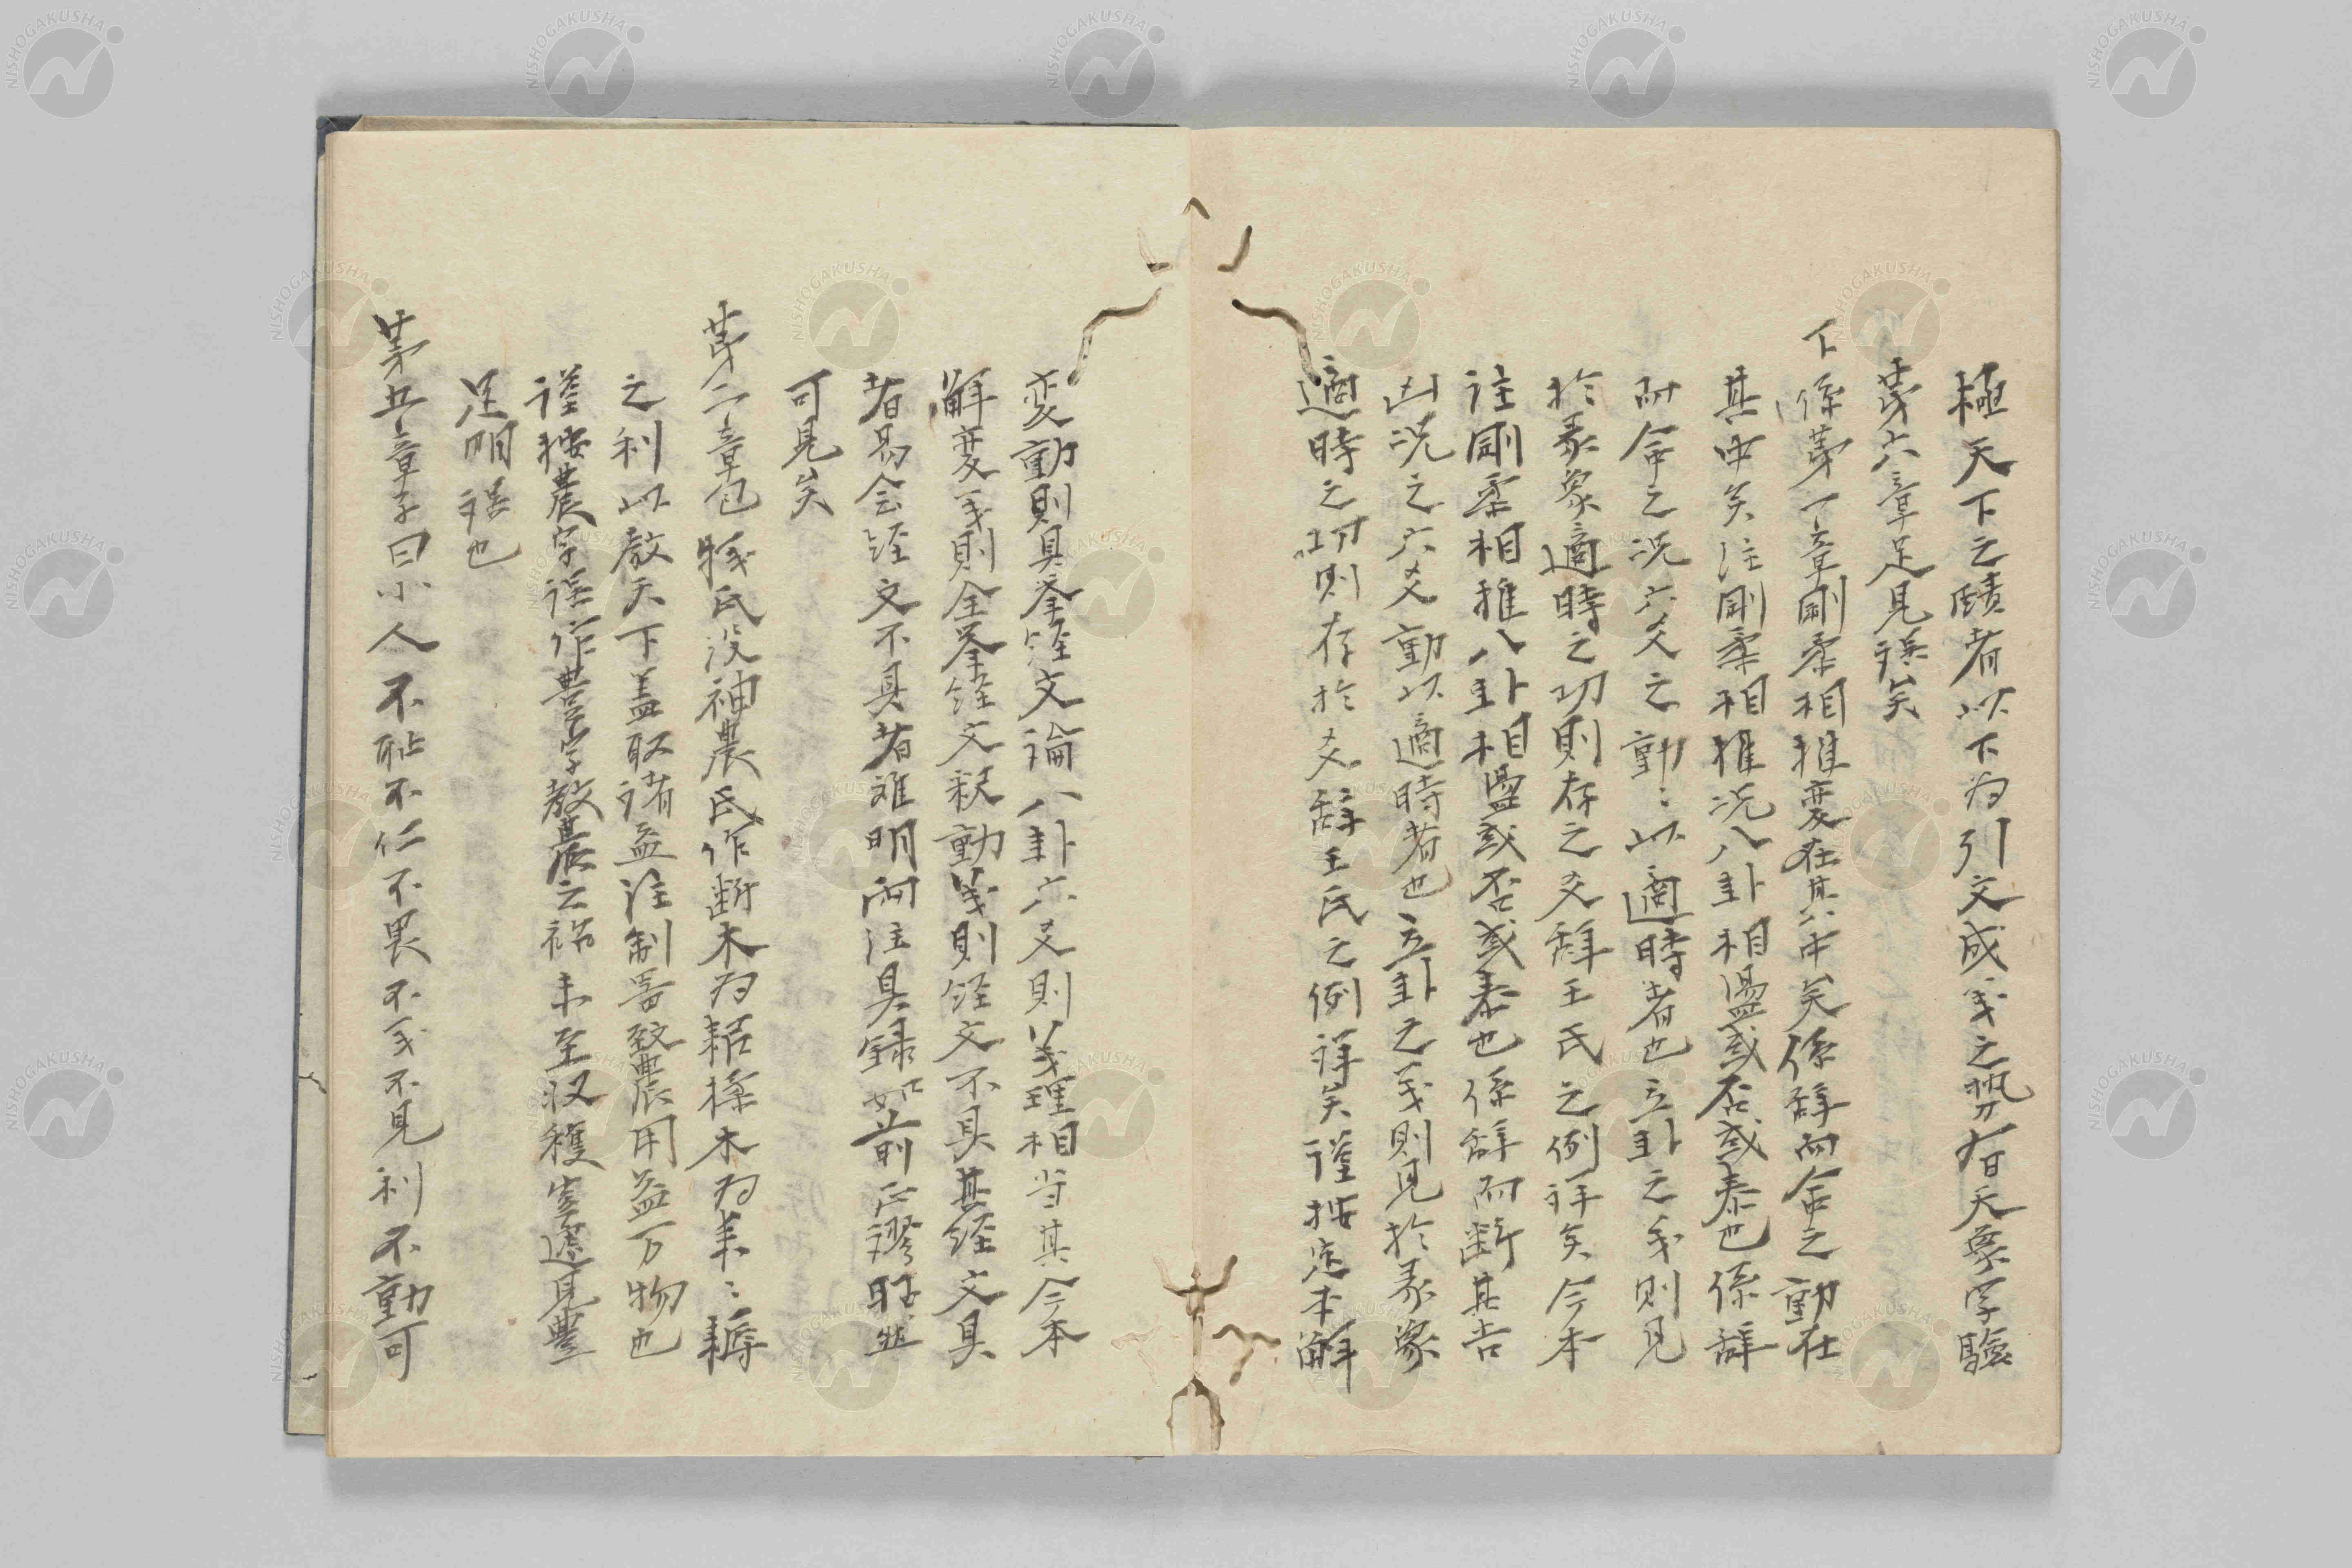 極天下之賾者以下为引文成𦍌之势有天象字驗
苐六章足見誤矣
下係苐一章剛柔相推変在其中矣係辞而命之動在
其中矣注剛柔相推况八卦相盪或否或泰也係辞
而命之况六爻之動〻以適時者也立卦之𦍌則見
於彖象適時之功則存之爻辞王氏之例詳矣今本
注剛柔相推八卦相盪或否或泰也係辞而断其吉
凶况之六爻動以適時者也立卦之𦍌則見於彖象
適時之功則存於爻辞王氏之例詳矣謹按定本解
変動則具挙経文論八卦六爻則義理相当其今本
解変𦍌則全挙経文釈動義則経文不具其経文具
者易会経文不具者难明而注具録如前正謬昭然
可見矣
苐二章包牺氏没神農氏作断木为耜揉木为耒〻耨
之利以教天下盖取诸益注制器致農用益万物也
謹按農字误作豊字教農之禍未至収穫寧遽見豊
足明误也
苐五章子曰小人不耻不仁不畏不𦍌不見利不動可
NISHOGAKUSHA